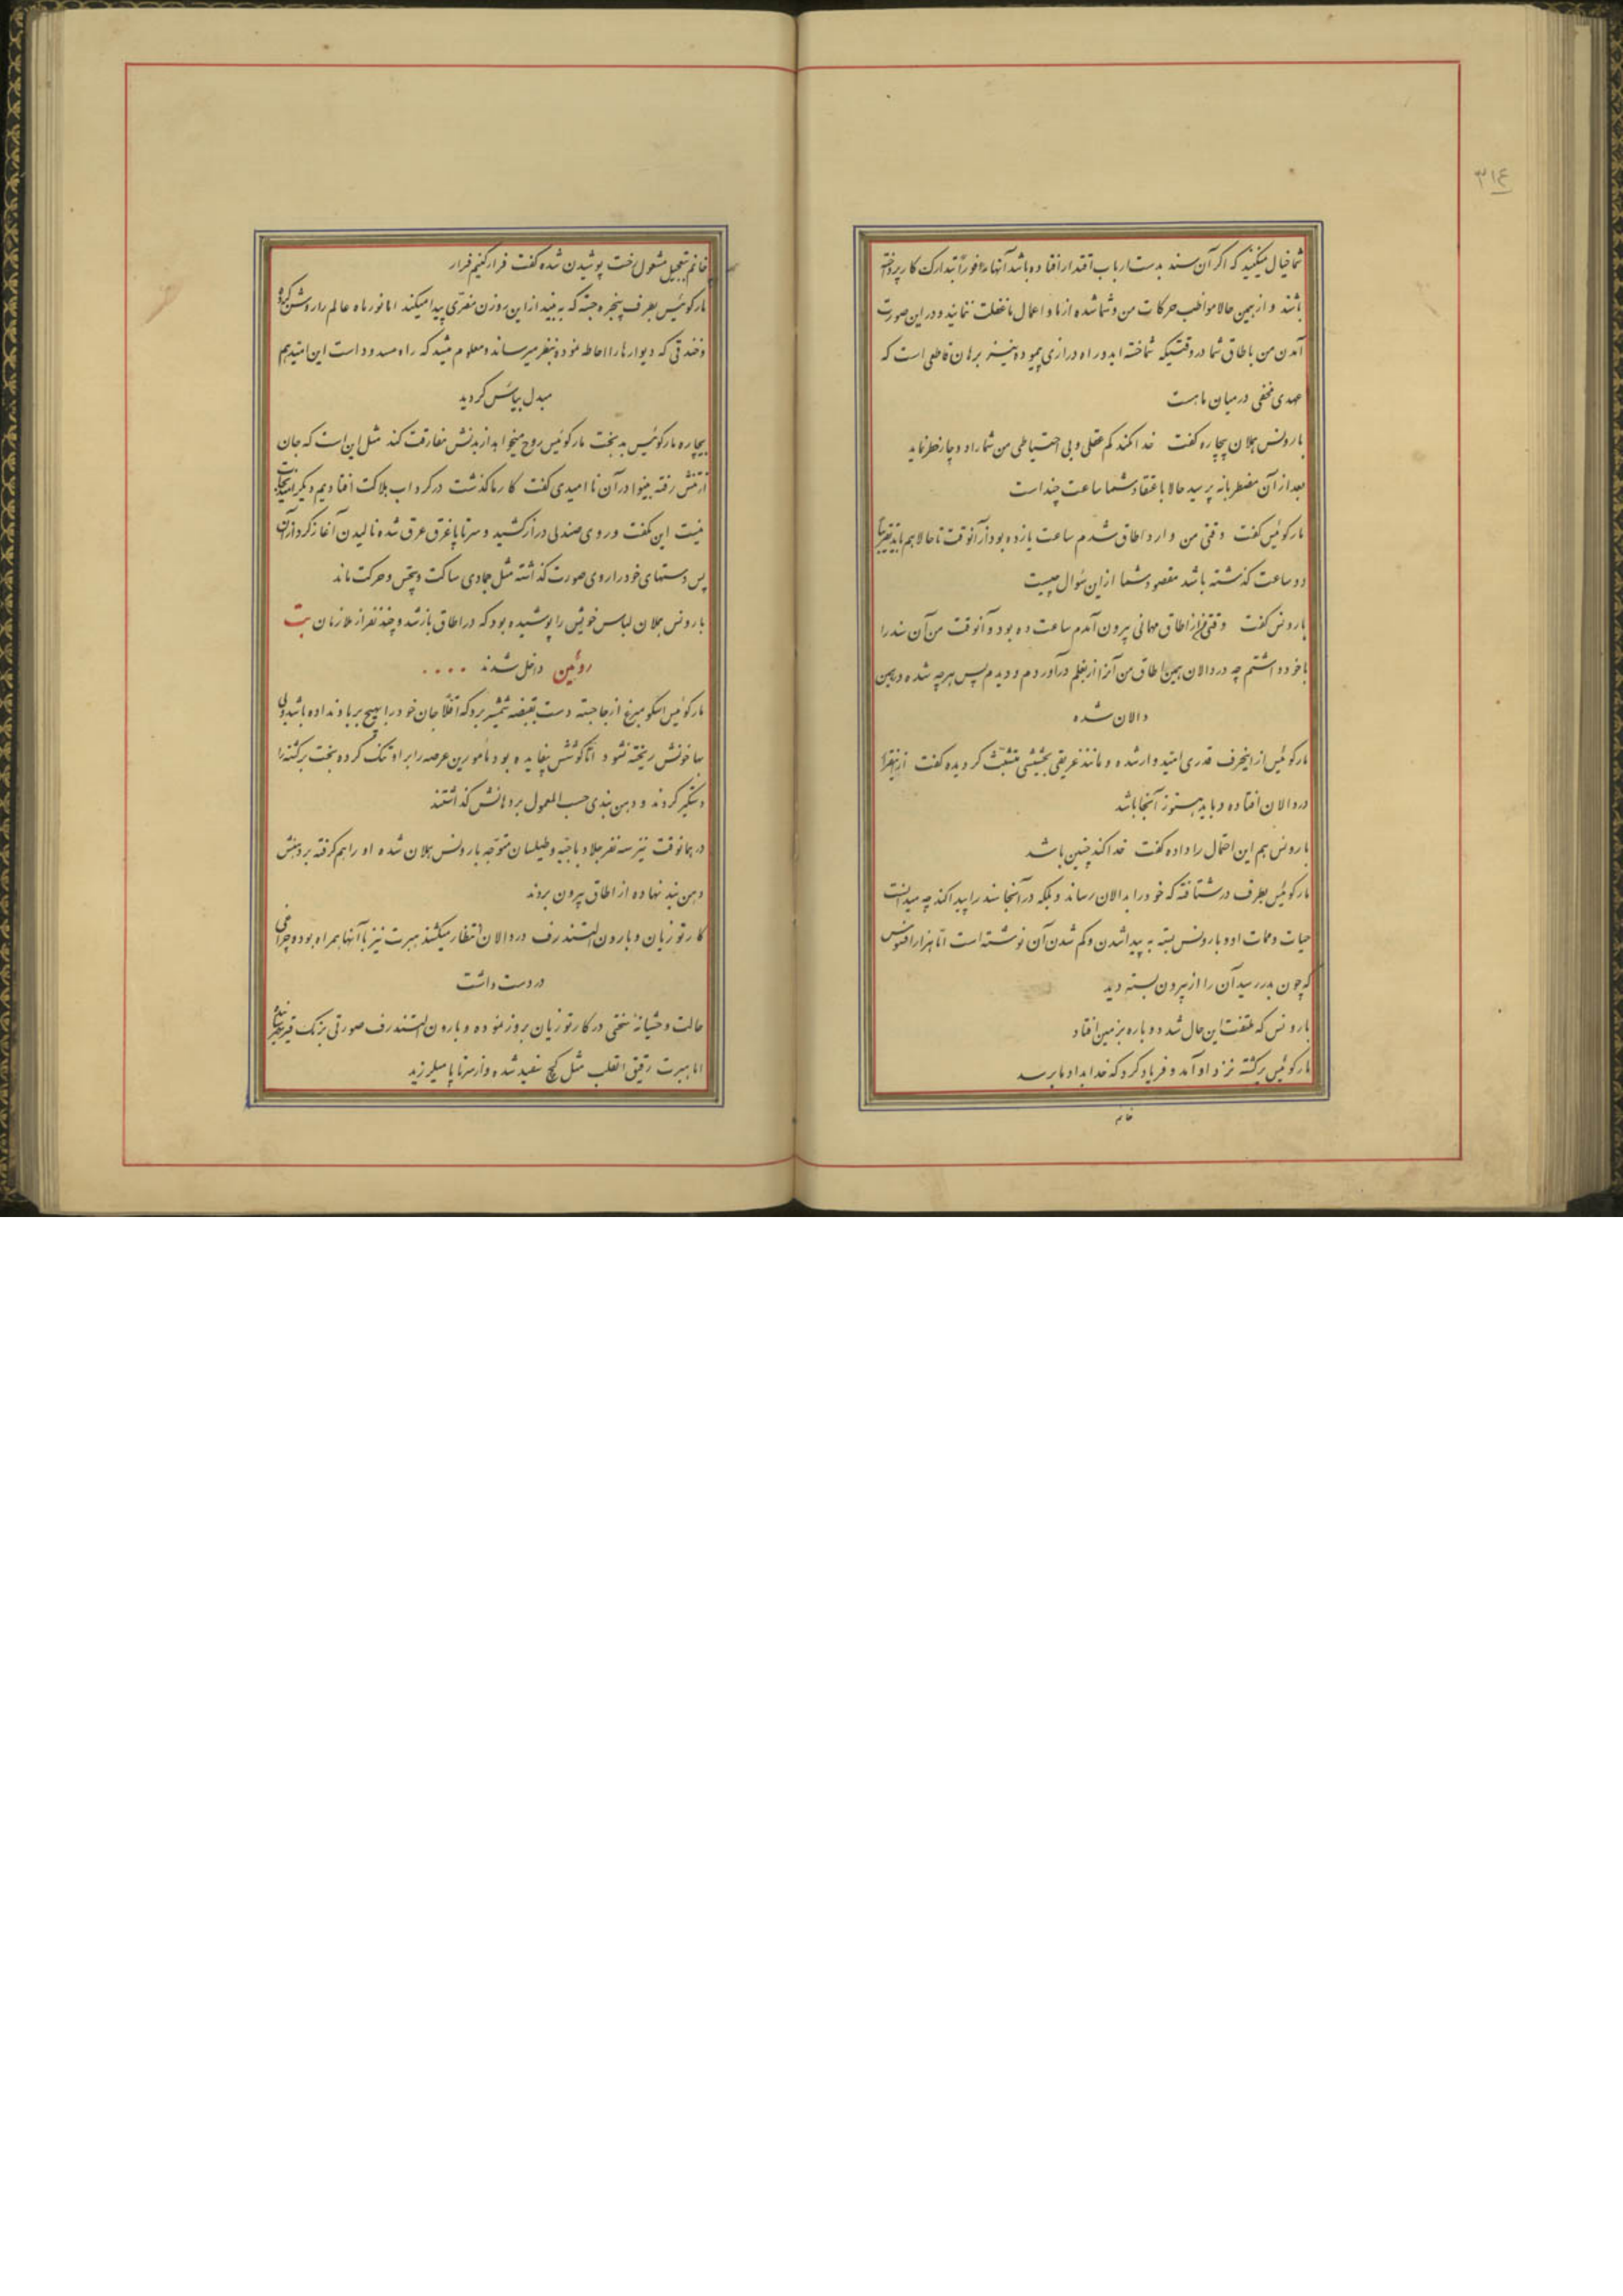 ۳۱۴
شما خیال میکنید که اگر آن سند بدست ارباب اقتدار افتاده باشد آنها فوراً بتدارک کار پرداخته
باشند و از همین حالا مواظب حرکات من و شما شده از ما و اعمال ما غفلت ننمایند و در این صورت
آمدن من باطاق شما در وقتیکه شما خسته اید و راه درازی پیموده نیز برهان قاطعی است که
عهدی مخفی در میان ما هست
بارونس هلان بیچاره گفت خدا نکند کم عقلی و بی احتیاطی من شما را دوچار خطر نماید
بعد از آن مضطربانه پرسید حالا باعتقاد شما ساعت چند است
مارکوئیس گفت وقتی من وارد اطاق شدم ساعت یازده بود از آنوقت تا حالا هم باید تقریباً
دو ساعت گذشته باشد مقصود شما از این سؤال چیست
بارونس گفت وقتی از اطاق مهمانی بیرون آمدم ساعت ده بود و آنوقت من آن سند را
با خود داشتم چه در دالان همین اطاق من آنرا از بغلم درآوردم و دیدم پس هر چه شده در همین
دالان شده
مارکوئیس از اینحرف قدری امیدوار شده و مانند غریقی بحشیشی متشبث گردیده گفت ازینقرار
در دالان افتاده و باید هنوز آنجا باشد
بارونس هم این احتمال را داده گفت خدا کند چنین باشد
مارکوئیس بطرف در شتافته که خود را بدالان رساند و بلکه در آنجا سند را پیدا کند چه میدانست
حیات و ممات او و بارونس بسته به پیدا شدن و گم شدن آن نوشته است اما هزار افسوس
که چون بدر رسید آن را از بیرون بسته دید
بارونس که ملتفت این حال شد دوباره بزمین افتاد
مارکوئیس برگشته نزد او آمد و فریاد کرد که خدا بداد ما برسد
خانم
خانم بتعجیل مشغول رخت پوشیدن شده گفت فرار کنیم فرار
مارکوئیس بطرف پنجره جسته که به بیند از این روزن مفری پیدا میکند اما نور ماه عالم را روشن کرده
و خندقی که دیوارها را احاطه نموده بنظر میرساند و معلوم میشد که راه مسدود است این امید هم
مبدل بیأس گردید
بیچاره مارکوئیس بدبخت مارکوئیس روح میخواهد از بدنش مفارقت کند مثل این است که جان
از تنش رفته بینوا در آن ناامیدی گفت کار ما گذشت در گرداب هلاکت افتادیم دیگر امید نجات
نیست این بگفت و روی صندلی دراز کشید و سرتاپا غرق عرق شده نالیدن آغاز کرد از آن
پس دستهای خود را روی صورت گذاشته مثل جمادی ساکت و بیحس و حرکت ماند
بارونس هلان لباس خویش را پوشیده بود که در اطاق باز شد و چند نفر از ملازمان بت
روئین داخل شدند ....
مارکوئیس اسکومبرغ از جا جسته دست بقبضه شمشیر برد که اقلاً جان خود را بهیچ بر باد نداده باشد ولی
خونش ریخته نشود اما کوشش بیفایده بود مأمورین عرصه را بر او تنگ کرده بخت برگشته را
دستگیر کردند و دهن بندی حسب المعمول بر دهانش گذاشتند
در همانوقت نیز سه نفر جلاد با جبه و طیلسان متوجه بارونس هلان شده او را هم گرفته بر دهنش
دهن بند نهاده از اطاق بیرون بردند
کارتوزیان و بارون الستندرف در دالان انتظار میکشند هبرت نیز با آنها همراه بود و چراغی
در دست داشت
حالت وحشیانهٔ سختی در کارتوزیان بروز نموده و بارون الستندرف صورتی برنگ قیر
اما هبرت رقیق القلب مثل گچ سفید شده و از سرتاپا میلرزید